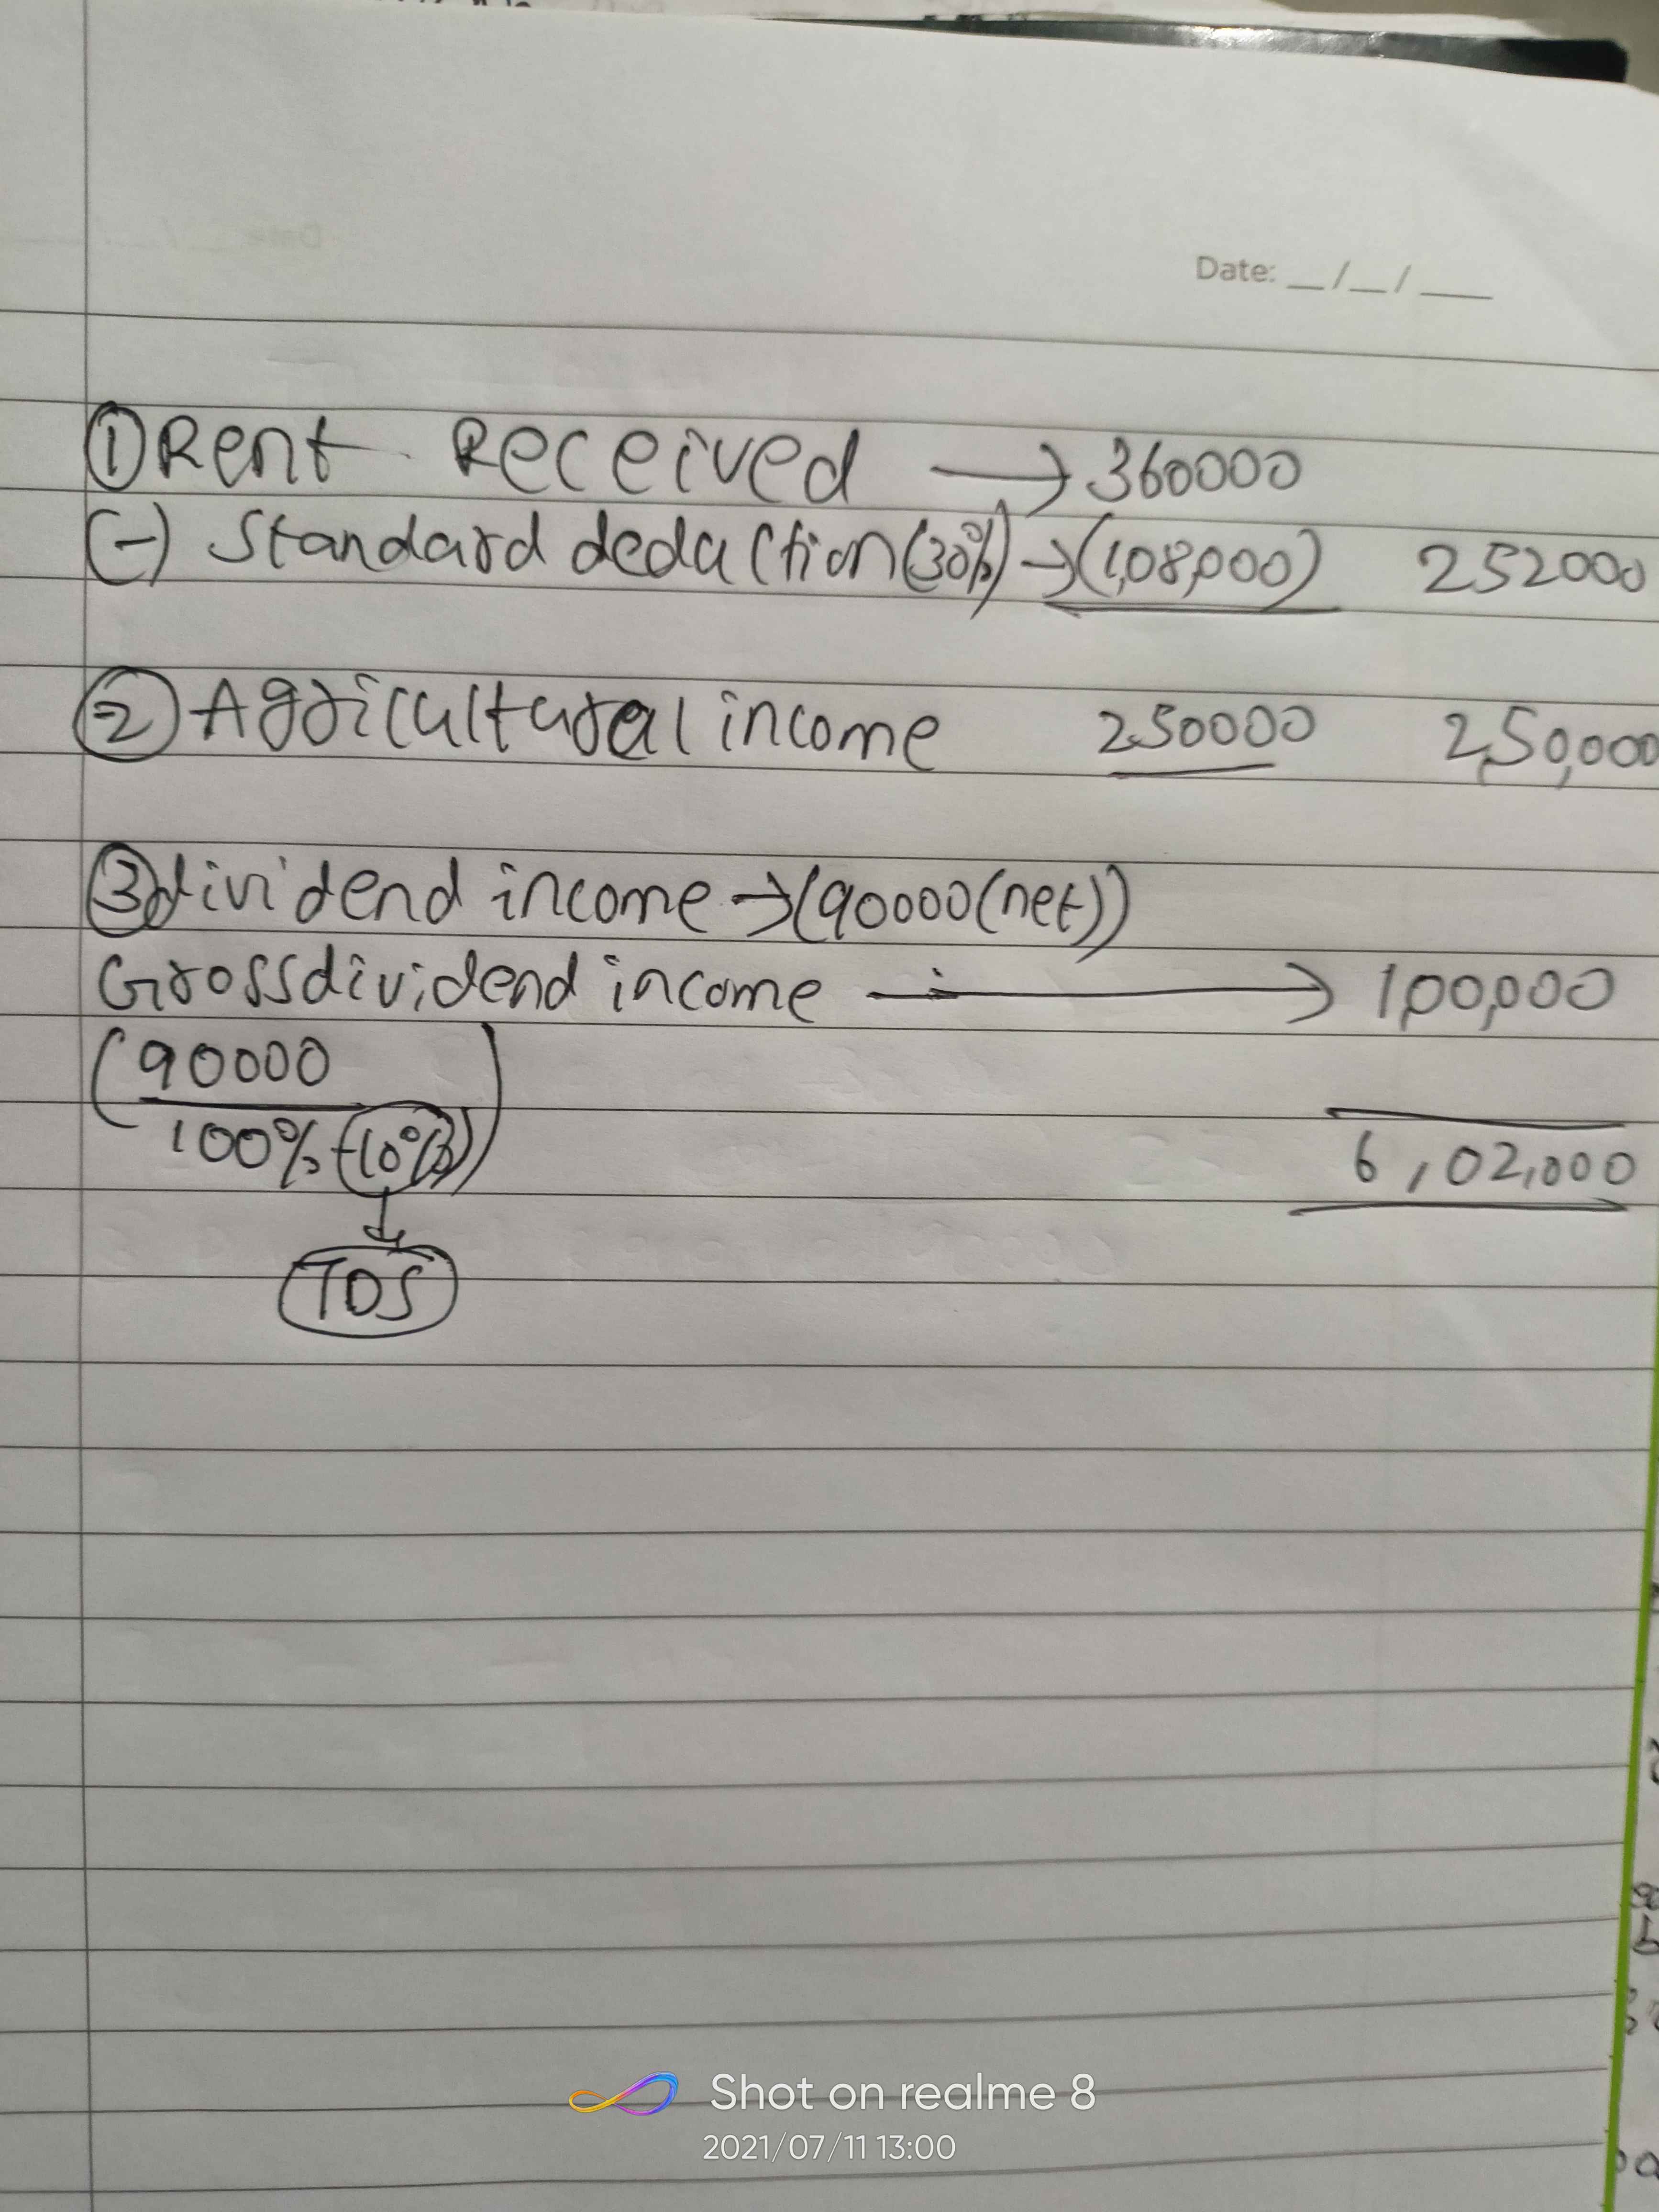 Date: __/__/___
① Rent Received → 360000
(-) Standard deduction (30%) → (1,08,000) 252000
② Agricultural income 250000 2,50,000
③ dividend income → (90000(net))
Gross dividend income → 1,00,000
(90000
100% - (10%))
6,02,000
↓
TDS
Shot on realme 8
2021/07/11 13:00